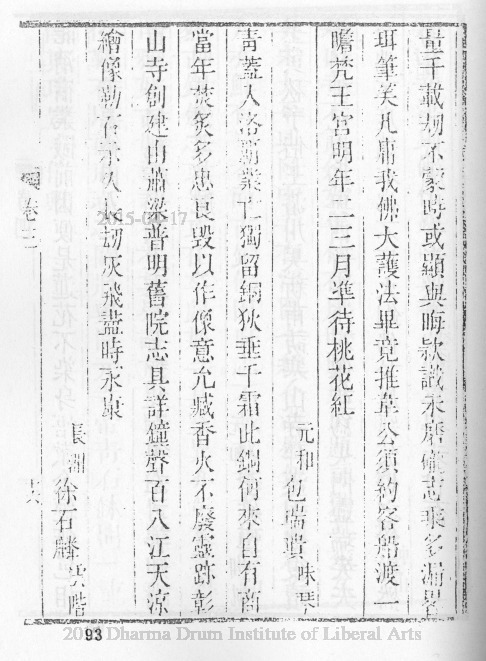 量千載刼不蒙時或顯與晦款識未磨礲志乘多漏畧
珥筆芺凡庸我佛大護法畢竟推韋公須約客船渡一
瞻梵王宮明年二三月準待桃花紅
元和包瑞璸味琴
青蓋入洛覇業亡獨留銅狄垂千霜此銅何來自有商
當年焚炙多忠良毀以作像意允臧香火不廢靈跡彰
山寺創建由蕭梁普明舊院志具詳鐘聲百八江天凉
繪像勒石示久長刼灰飛盡時永康
長洲徐石麟雲皆
卷三
十六
2015-04-17
93
Dharma Drum Institute of Liberal Arts